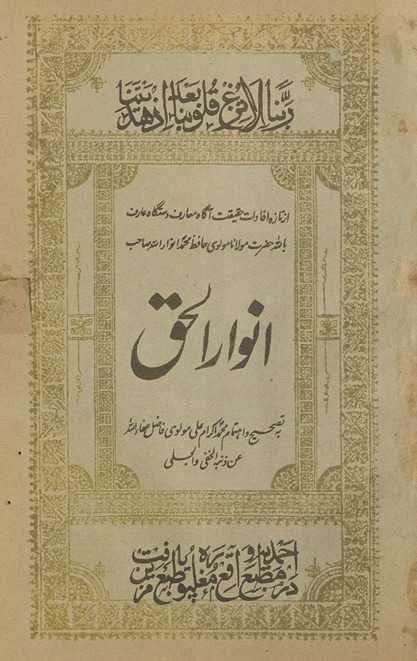 ربنا لا تزغ قلوبنا بعد اذ هدیتنا
از تازه افادات حقیقت آگاه معارف دستگاه عارف
بالله حضرت مولانا مولوی حافظ محمد انوار الله صاحب
انوار الحق
به تصحیح و اهتمام محمد اکرام علی مولوی فاضل عفاء الله
عن ذنبه الخفی والجلی
در مطبع واقع طبع یافت